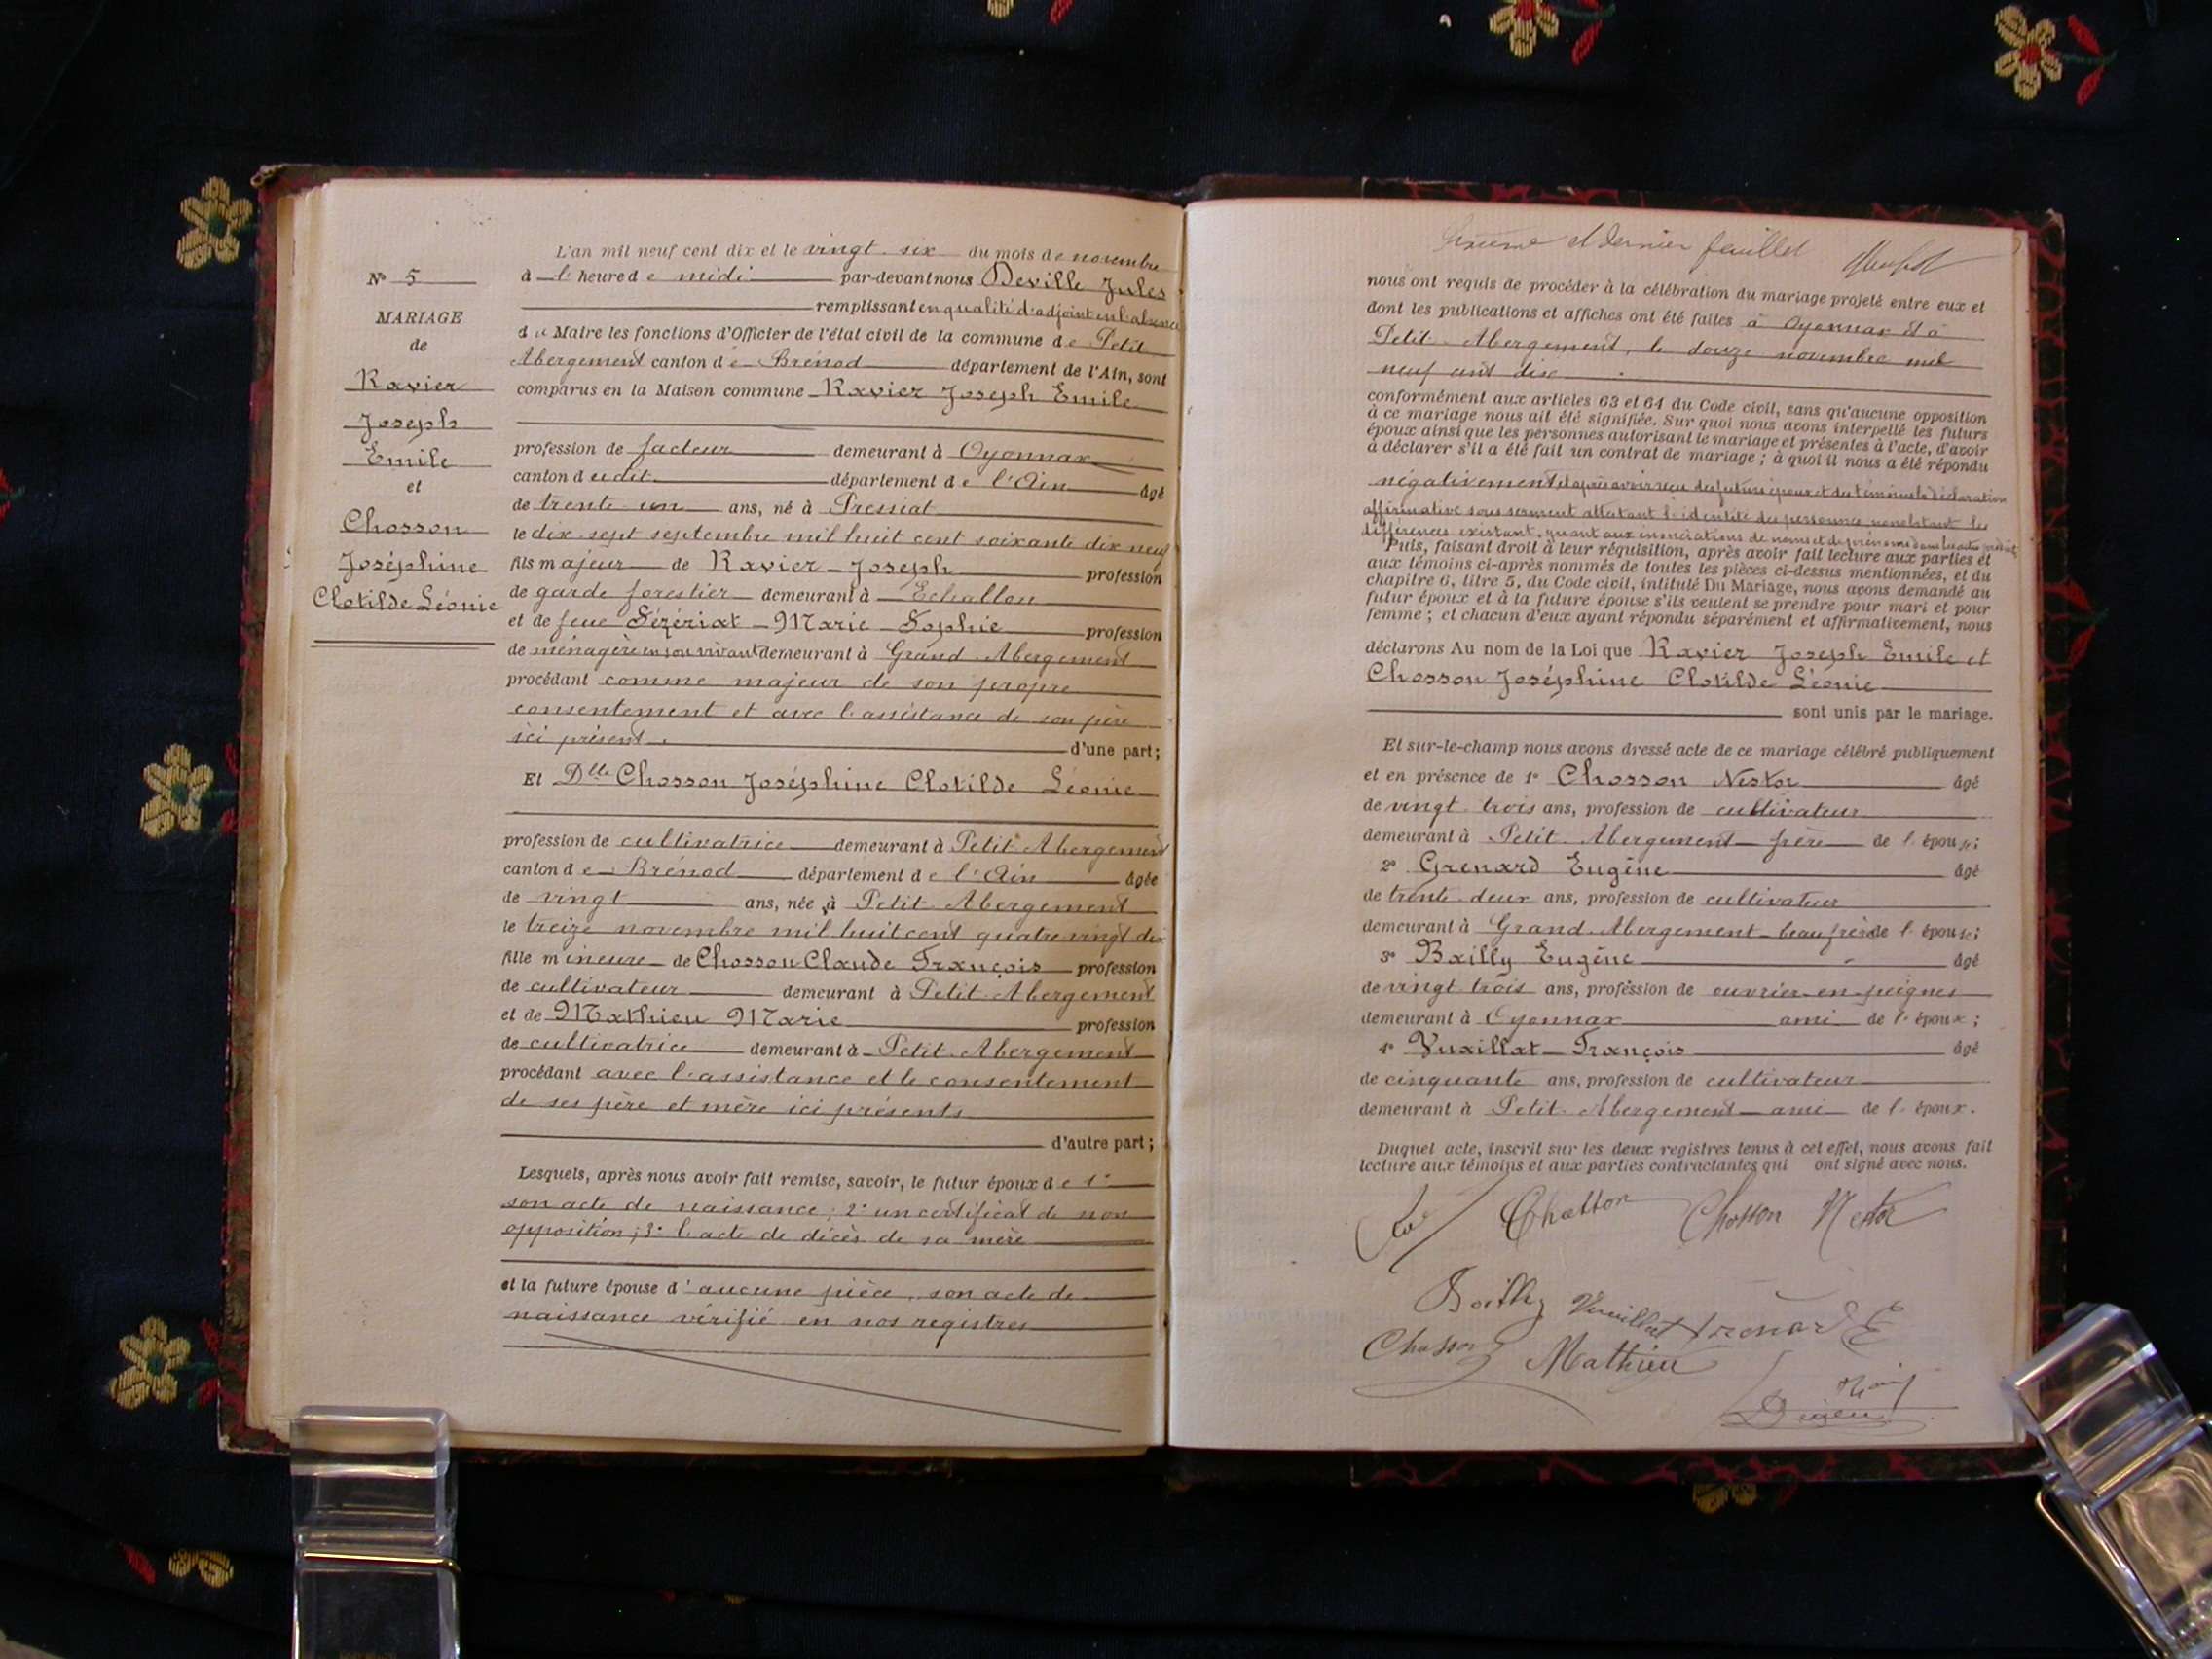 L'an mil neuf cent dix et le vingt-six du mois de novembre
à l'heure de midi par-devant nous Deville Jules
remplissant en qualité d'adjoint en l'absence
du Maire les fonctions d'Officier de l'état civil de la commune de Petit
Abergement canton de Brénod département de l'Ain, sont
comparus en la Maison commune Ravier Joseph Emile
profession de facteur demeurant à Oyonnax
canton dudit département de l'Ain âgé
de trente un ans, né à Pressiat
le dix-sept septembre mil huit cent soixante dix neuf
fils majeur de Ravier Joseph profession
de garde forestier demeurant à Echallon
et de feue Sézériat Marie Sophie profession
de ménagère en son vivant demeurant à Grand-Abergement
procédant comme majeur de son propre
consentement et avec l'assistance de son père
ici présent. d'une part;
Et Dlle Chosson Joséphine Clotilde Léonie
profession de cultivatrice demeurant à Petit-Abergement
canton de Brénod département de l'Ain âgée
de vingt ans, née à Petit-Abergement
le treize novembre mil huit cent quatre vingt dix
fille mineure de Chosson Claude François profession
de cultivateur demeurant à Petit-Abergement
et de Mathieu Marie profession
de cultivatrice demeurant à Petit-Abergement
procédant avec l'assistance et le consentement
de ses père et mère ici présents
d'autre part;
Lesquels, après nous avoir fait remise, savoir, le futur époux de 1°
son acte de naissance; 2° un certificat de non
opposition; 3° l'acte de décès de sa mère
et la future épouse d'aucune pièce, son acte de
naissance vérifié en nos registres
N° 5
MARIAGE
de
Ravier
Joseph
Emile
et
Chosson
Joséphine
Clotilde Léonie
et dernier feuillet
nous ont requis de procéder à la célébration du mariage projeté entre eux et
dont les publications et affiches ont été faites à Oyonnax et à
Petit-Abergement, le douze novembre mil
neuf cent dix
conformément aux articles 63 et 64 du Code civil, sans qu'aucune opposition
à ce mariage nous ait été signifiée. Sur quoi nous avons interpellé les futurs
époux ainsi que les personnes autorisant le mariage et présentes à l'acte, d'avoir
à déclarer s'il a été fait un contrat de mariage; à quoi il nous a été répondu
négativement et après avoir reçu des futurs époux et des témoins la déclaration
affirmative sous serment attestant l'identité des personnes nonobstant les
différences existant, quant aux énonciations de noms et de prénoms dans les actes
Puis, faisant droit à leur réquisition, après avoir fait lecture aux parties et
aux témoins ci-après nommés de toutes les pièces ci-dessus mentionnées, et du
chapitre 6, titre 5, du Code civil, intitulé Du Mariage, nous avons demandé au
futur époux et à la future épouse s'ils veulent se prendre pour mari et pour
femme; et chacun d'eux ayant répondu séparément et affirmativement, nous
déclarons Au nom de la Loi que Ravier Joseph Emile et
Chosson Joséphine Clotilde Léonie
sont unis par le mariage.
Et sur-le-champ nous avons dressé acte de ce mariage célébré publiquement
et en présence de 1° Chosson Nestor âgé
de vingt-trois ans, profession de cultivateur
demeurant à Petit-Abergement frère de l'épouse;
2° Grenard Eugène âgé
de trente-deux ans, profession de cultivateur
demeurant à Grand-Abergement beau frère de l'épouse;
3° Bailly Eugène âgé
de vingt trois ans, profession de ouvrier-en-peignes
demeurant à Oyonnax ami de l'époux;
4° Vuaillat François âgé
de cinquante ans, profession de cultivateur
demeurant à Petit-Abergement ami de l'époux.
Duquel acte, inscrit sur les deux registres tenus à cet effet, nous avons fait
lecture aux témoins et aux parties contractantes qui ont signé avec nous.
Chosson Chosson Nestor
Bailly Vuaillat Grenard E
Chosson Mathieu